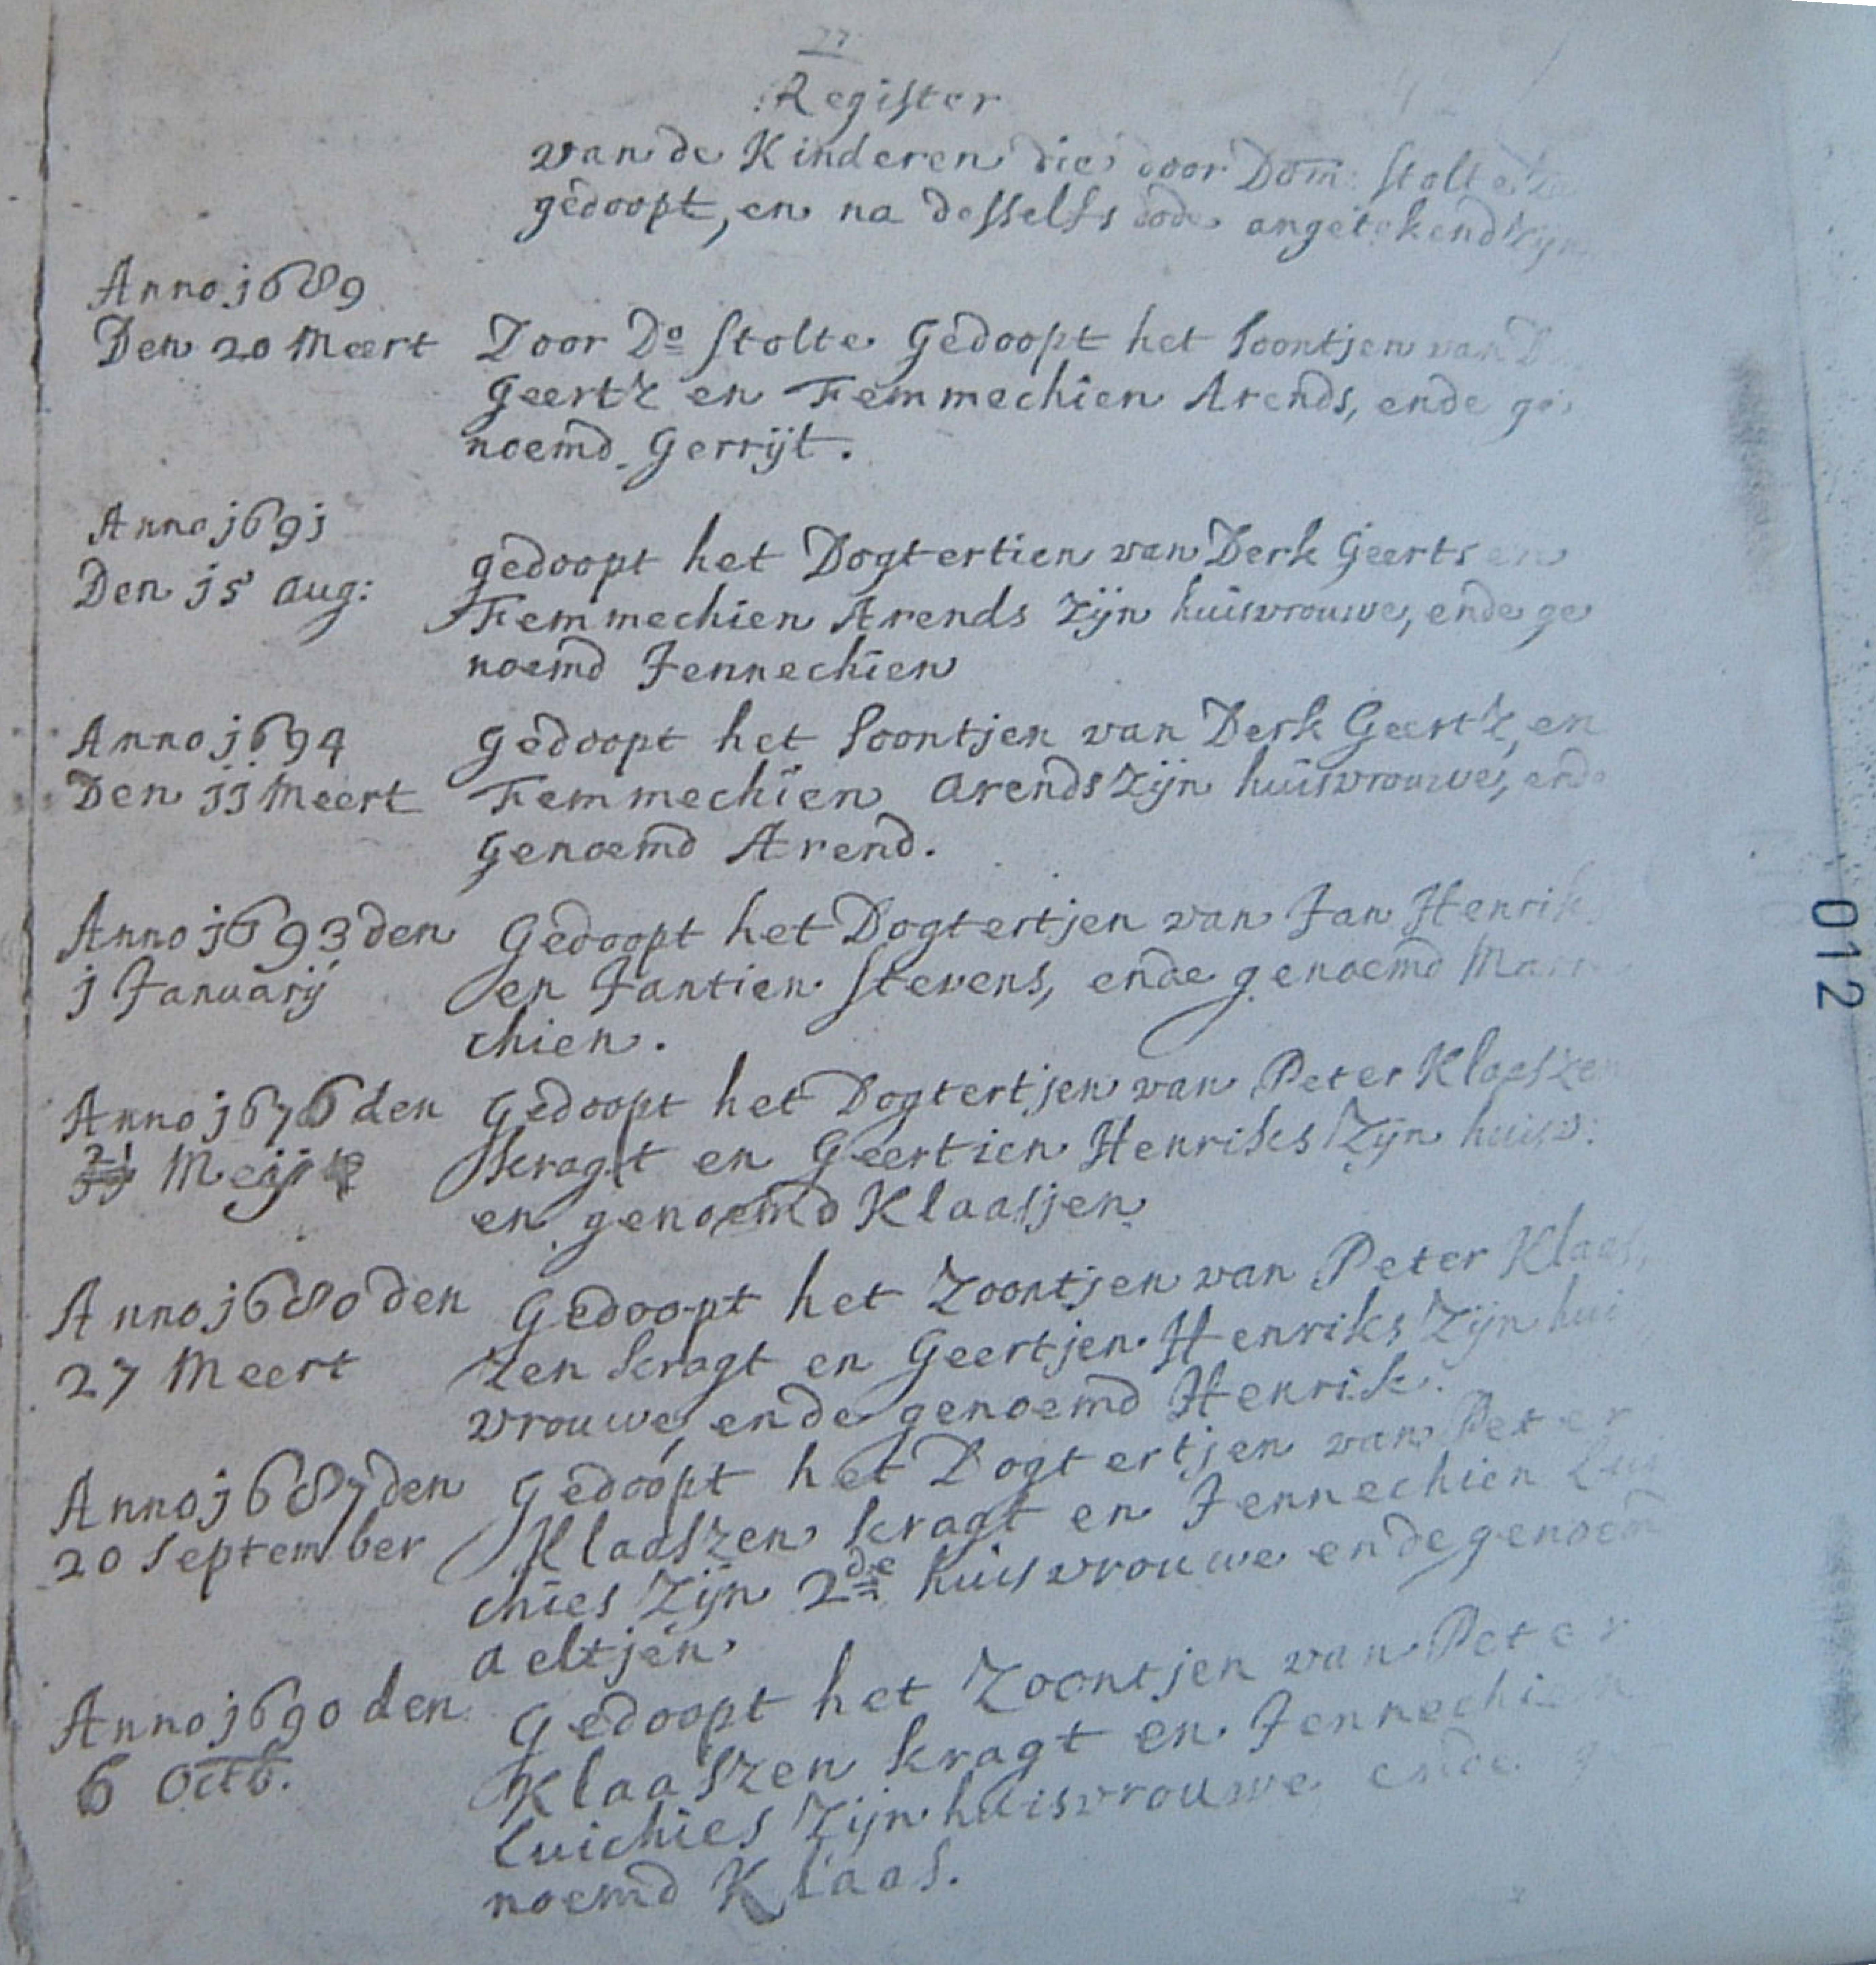 Register
van de Kinderen die door Dom: Stolte
gedoopt, en na desselfs dode angetekend zyn
Anno 1689
Den 20 Meert
Door Do Stolte Gedoopt het Soontjen van D
Geertz en Femmechien Arends, ende ge
noemd Gerrijt.
Anno 1691
Den 15 Aug:
gedoopt het Dogtertien van Derk Geerts en
Femmechien Arends zijn huisvrouwe, ende ge
noemd Jennechien
Anno 1694
Den 11 Meert
Gedoopt het Soontjen van Derk Geertz, en
Femmechien Arends zijn huisvrouwe, ende
Genoemd Arend.
Anno 1693 den
1 Januarij
Gedoopt het Dogtertjen van Jan Henrik
en Jantien Stevens, ende genoemd Marr
chien.
Anno 1676 den
21 Meij
Gedoopt het Dogtertjen van Peter Klaaszen
kragt en Geertien Henriks zijn huisv:
en genoemd Klaasjen
Anno 1680 den
27 Meert
Gedoopt het Zoontjen van Peter Klaas
zen kragt en Geertjen Henriks zijn hui
vrouwe, ende genoemd Henrik.
Anno 1687 den
20 September
Gedoopt het Dogtertjen van Peter
Klaaszen kragt en Jennechien Lui
chies zijn 2de huisvrouwe ende genoemd
Aeltjen
Anno 1690 den
6 Octb.
Gedoopt het Zoontjen van Peter
Klaaszen kragt en Jennechien
Luichies zijn huisvrouwe ende g
noemd Klaas.
012